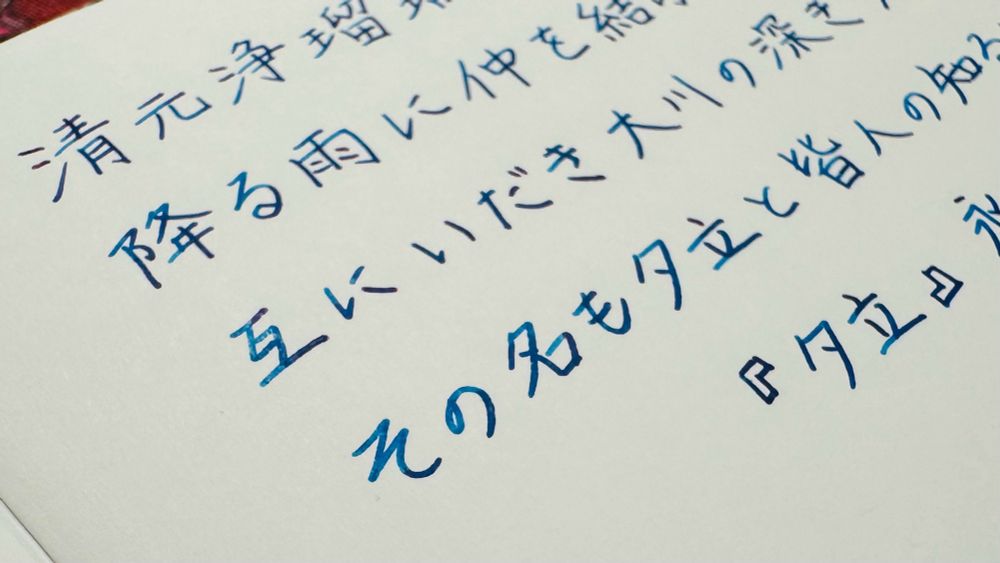 清元浄瑠
降る雨に仲を結
互にいだき大川の深き
その名も夕立と皆人の知る
『夕立』永